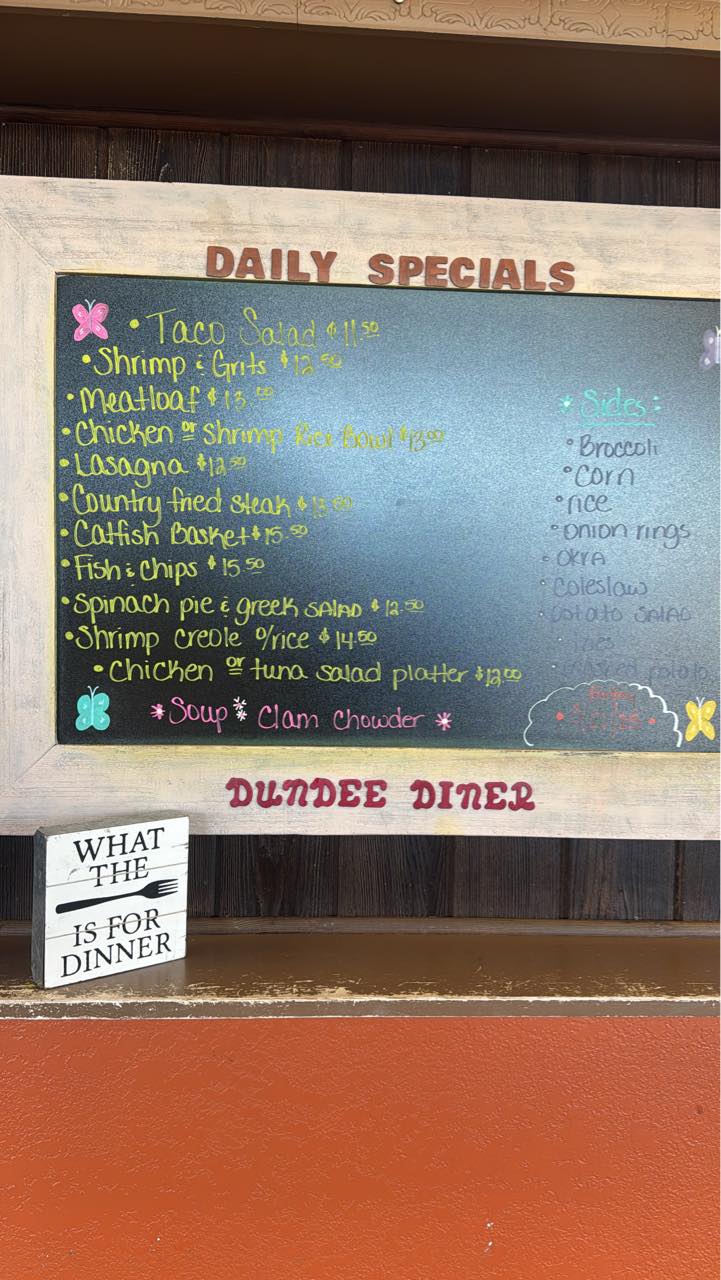 DAILY SPECIALS
• Taco Salad $11.50
• Shrimp & Grits $12.50
• Meatloaf $13.00
• Chicken or Shrimp Rice Bowl $13.00
• Lasagna $12.50
• Country fried steak $13.50
• Catfish Basket $15.50
• Fish & Chips $15.50
• Spinach pie & greek SALAD $12.50
• Shrimp creole o/rice $14.50
• Chicken or tuna salad platter $12.00
* Soup * Clam Chowder *
* Sides:
• Broccoli
• Corn
• rice
• onion rings
• OKRA
• Coleslaw
potato SALAD
Friday
DUNDEE DINER
WHAT
THE
IS FOR
DINNER